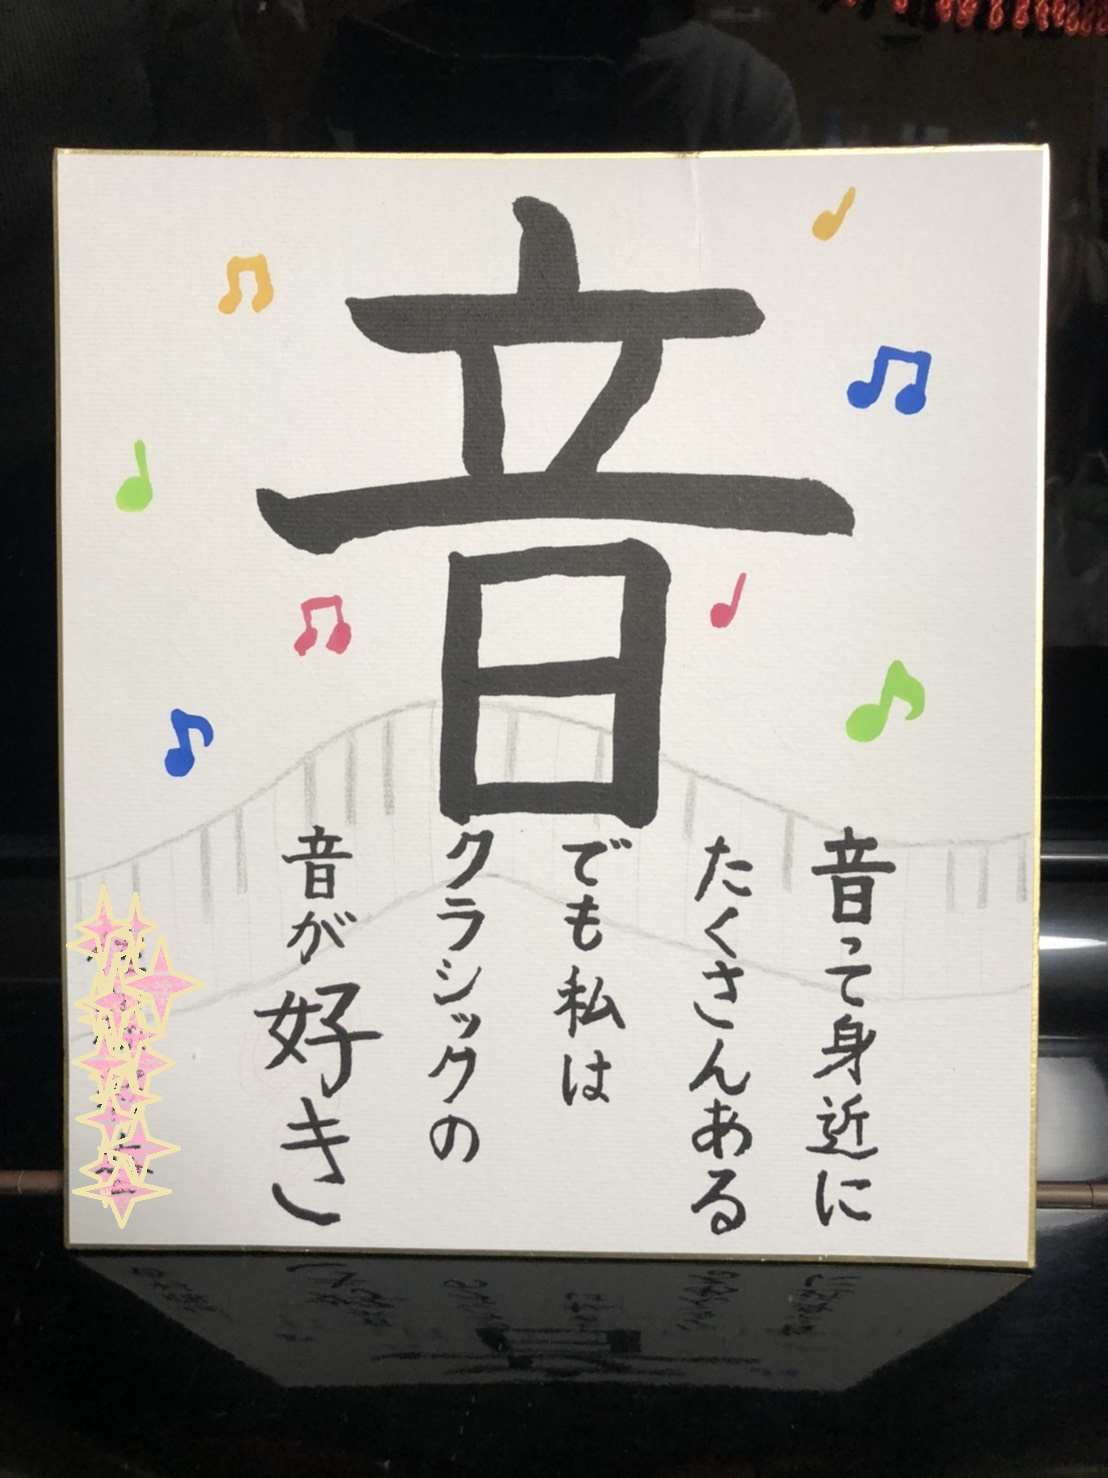 音
音って身近に
たくさんある
でも私は
クラシックの
音が好き